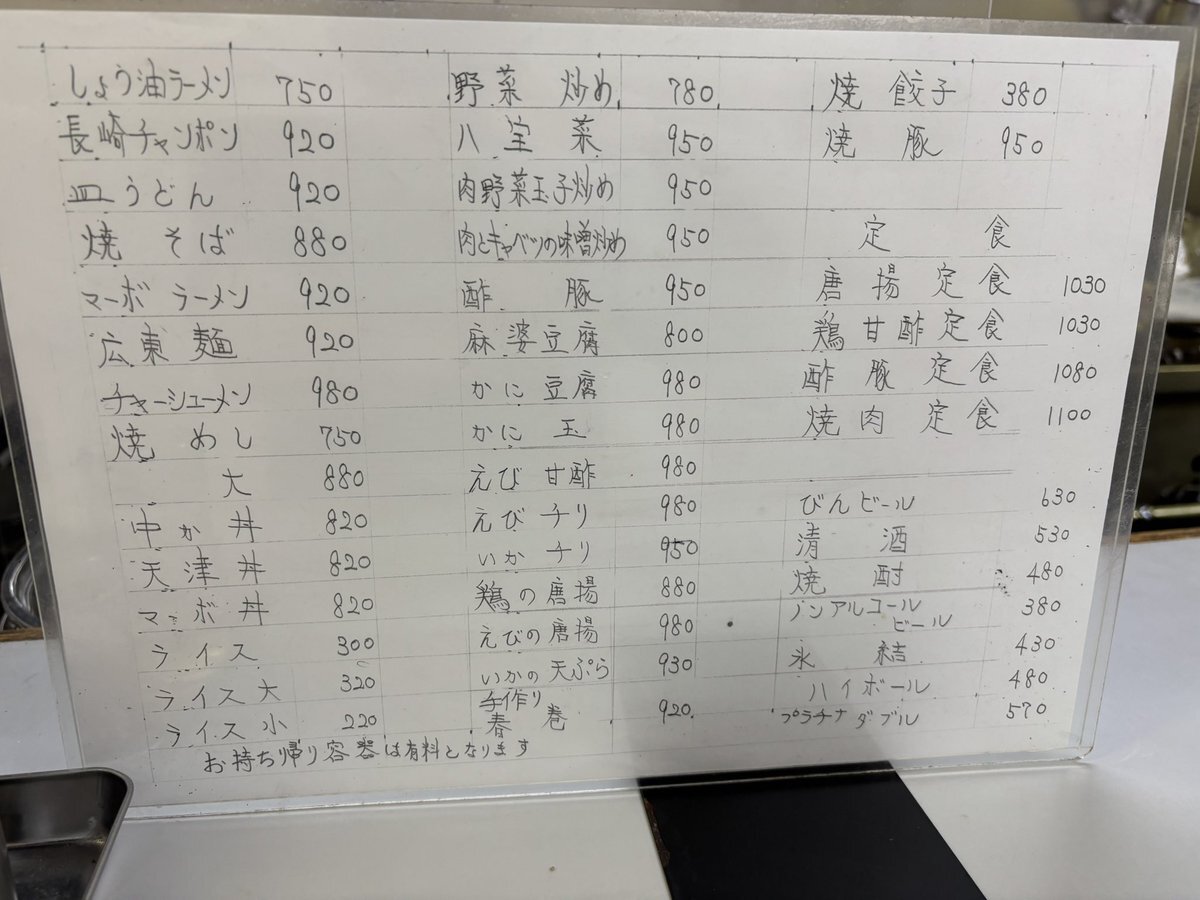 しょう油ラーメン 750
長崎チャンポン 920
皿うどん 920
焼そば 880
マーボラーメン 920
広東麺 920
チャーシューメン 980
焼めし 750
大 880
中か丼 820
天津丼 820
マーボ丼 820
ライス 300
ライス大 320
ライス小 220
お持ち帰り容器は有料となります
野菜炒め 780
八宝菜 950
肉野菜玉子炒め 950
肉とキャベツの味噌炒め 950
酢豚 950
麻婆豆腐 800
かに豆腐 980
かに玉 980
えび甘酢 980
えびチリ 980
いかチリ 950
鶏の唐揚 880
えびの唐揚 980
いかの天ぷら 930
手作り
春巻 920
焼餃子 380
焼豚 950
定食
唐揚定食 1030
鶏甘酢定食 1030
酢豚定食 1080
焼肉定食 1100
びんビール 630
清酒 530
焼酎 480
ノンアルコール
ビール 380
氷結 430
ハイボール 480
プラチナダブル 570